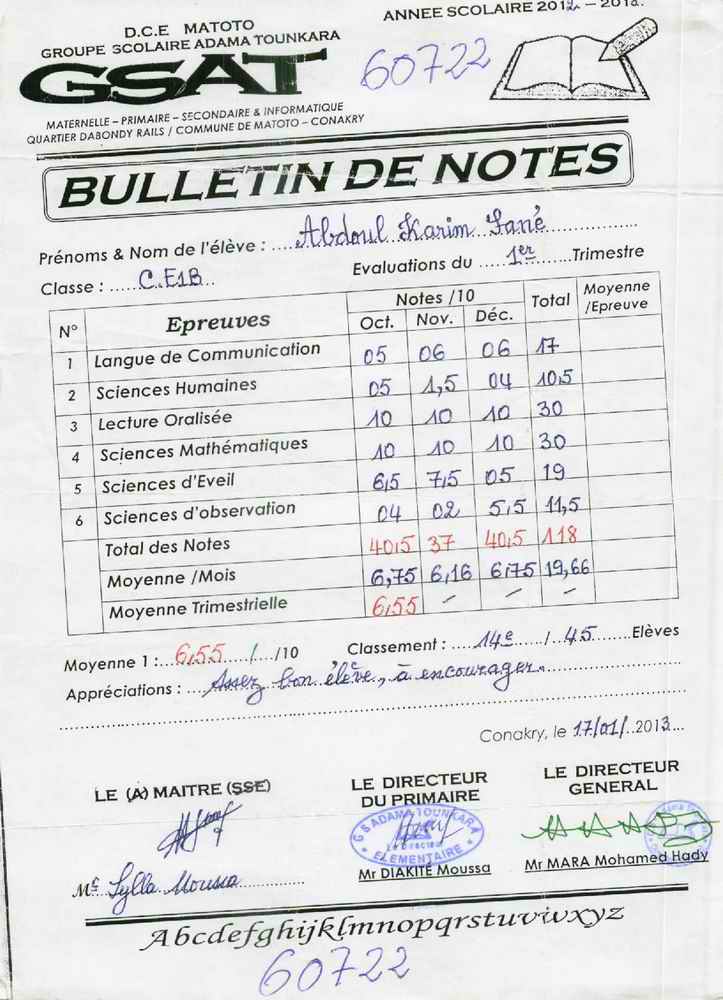 D.C.E MATOTO
GROUPE SCOLAIRE ADAMA TOUNKARA
GSAT
MATERNELLE – PRIMAIRE – SECONDAIRE & INFORMATIQUE
QUARTIER DABONDY RAILS / COMMUNE DE MATOTO – CONAKRY
ANNEE SCOLAIRE 2012 – 2013.
60722
BULLETIN DE NOTES
Prénoms & Nom de l'élève : Abdoul Karim Fané
Classe : C.E1B Evaluations du 1er Trimestre
N° Epreuves Notes /10 Total Moyenne /Epreuve
Oct. Nov. Déc.
1 Langue de Communication 05 06 06 17
2 Sciences Humaines 05 1,5 04 10,5
3 Lecture Oralisée 10 10 10 30
4 Sciences Mathématiques 10 10 10 30
5 Sciences d'Eveil 6,5 7,5 05 19
6 Sciences d'observation 04 02 5,5 11,5
Total des Notes 40,5 37 40,5 118
Moyenne /Mois 6,75 6,16 6,75 19,66
Moyenne Trimestrielle 6,55 – –
Moyenne 1 : 6,55 / /10 Classement : 14e / 45 Elèves
Appréciations : Assez bon élève, à encourager.
Conakry, le 17/01/ 2013
LE (A) MAITRE (SSE)
LE DIRECTEUR DU PRIMAIRE
LE DIRECTEUR GENERAL
G S ADAMA TOUNKARA
ELEMENTAIRE
Mr Sylla Moussa
Mr DIAKITÉ Moussa
Mr MARA Mohamed Hady
Abcdefghijklmnopqrstuvwxyz
60722